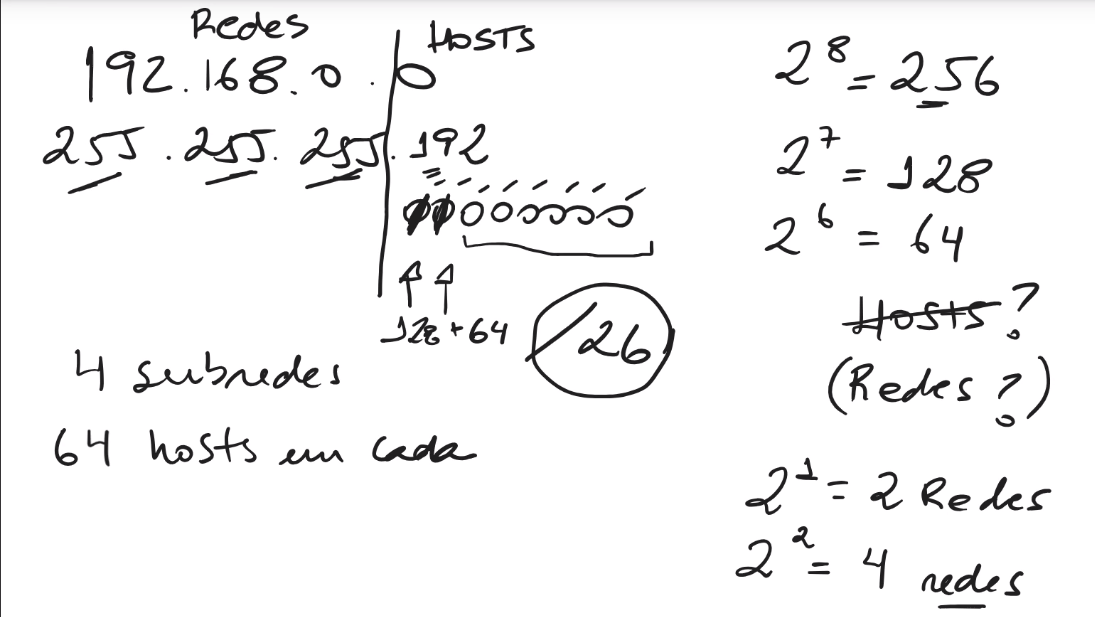 Redes
HOSTS
192.168.0.0
255.255.255.192
000000
128+64
/26
4 subredes
64 hosts em cada
2^8 = 256
2^7 = 128
2^6 = 64
Hosts?
(Redes?)
2^1 = 2 Redes
2^2 = 4 redes